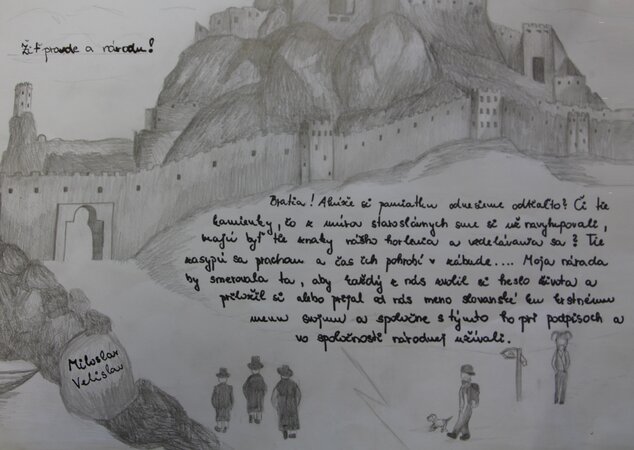 Žiť pravde a národu!
Bratia! Akúže si pamiatku odnesieme odtiaľto? Či tie
kamienky, čo z múra staroslávnych sme si už navylupovali,
majú byť tie znaky nášho horlenia a vzdelávania sa? Tie
zasypú sa prachom a čas ich pohrobí v zábude.... Moja národa
by smerovala ta, aby každý z nás zvolil si heslo života a
priložil si alebo prijal od nás meno slovanské ku krstnému
menu svojmu a spoločne s týmto ho pri podpisoch a
vo spoločnosti národnej užívali.
Miloslav
Velislav